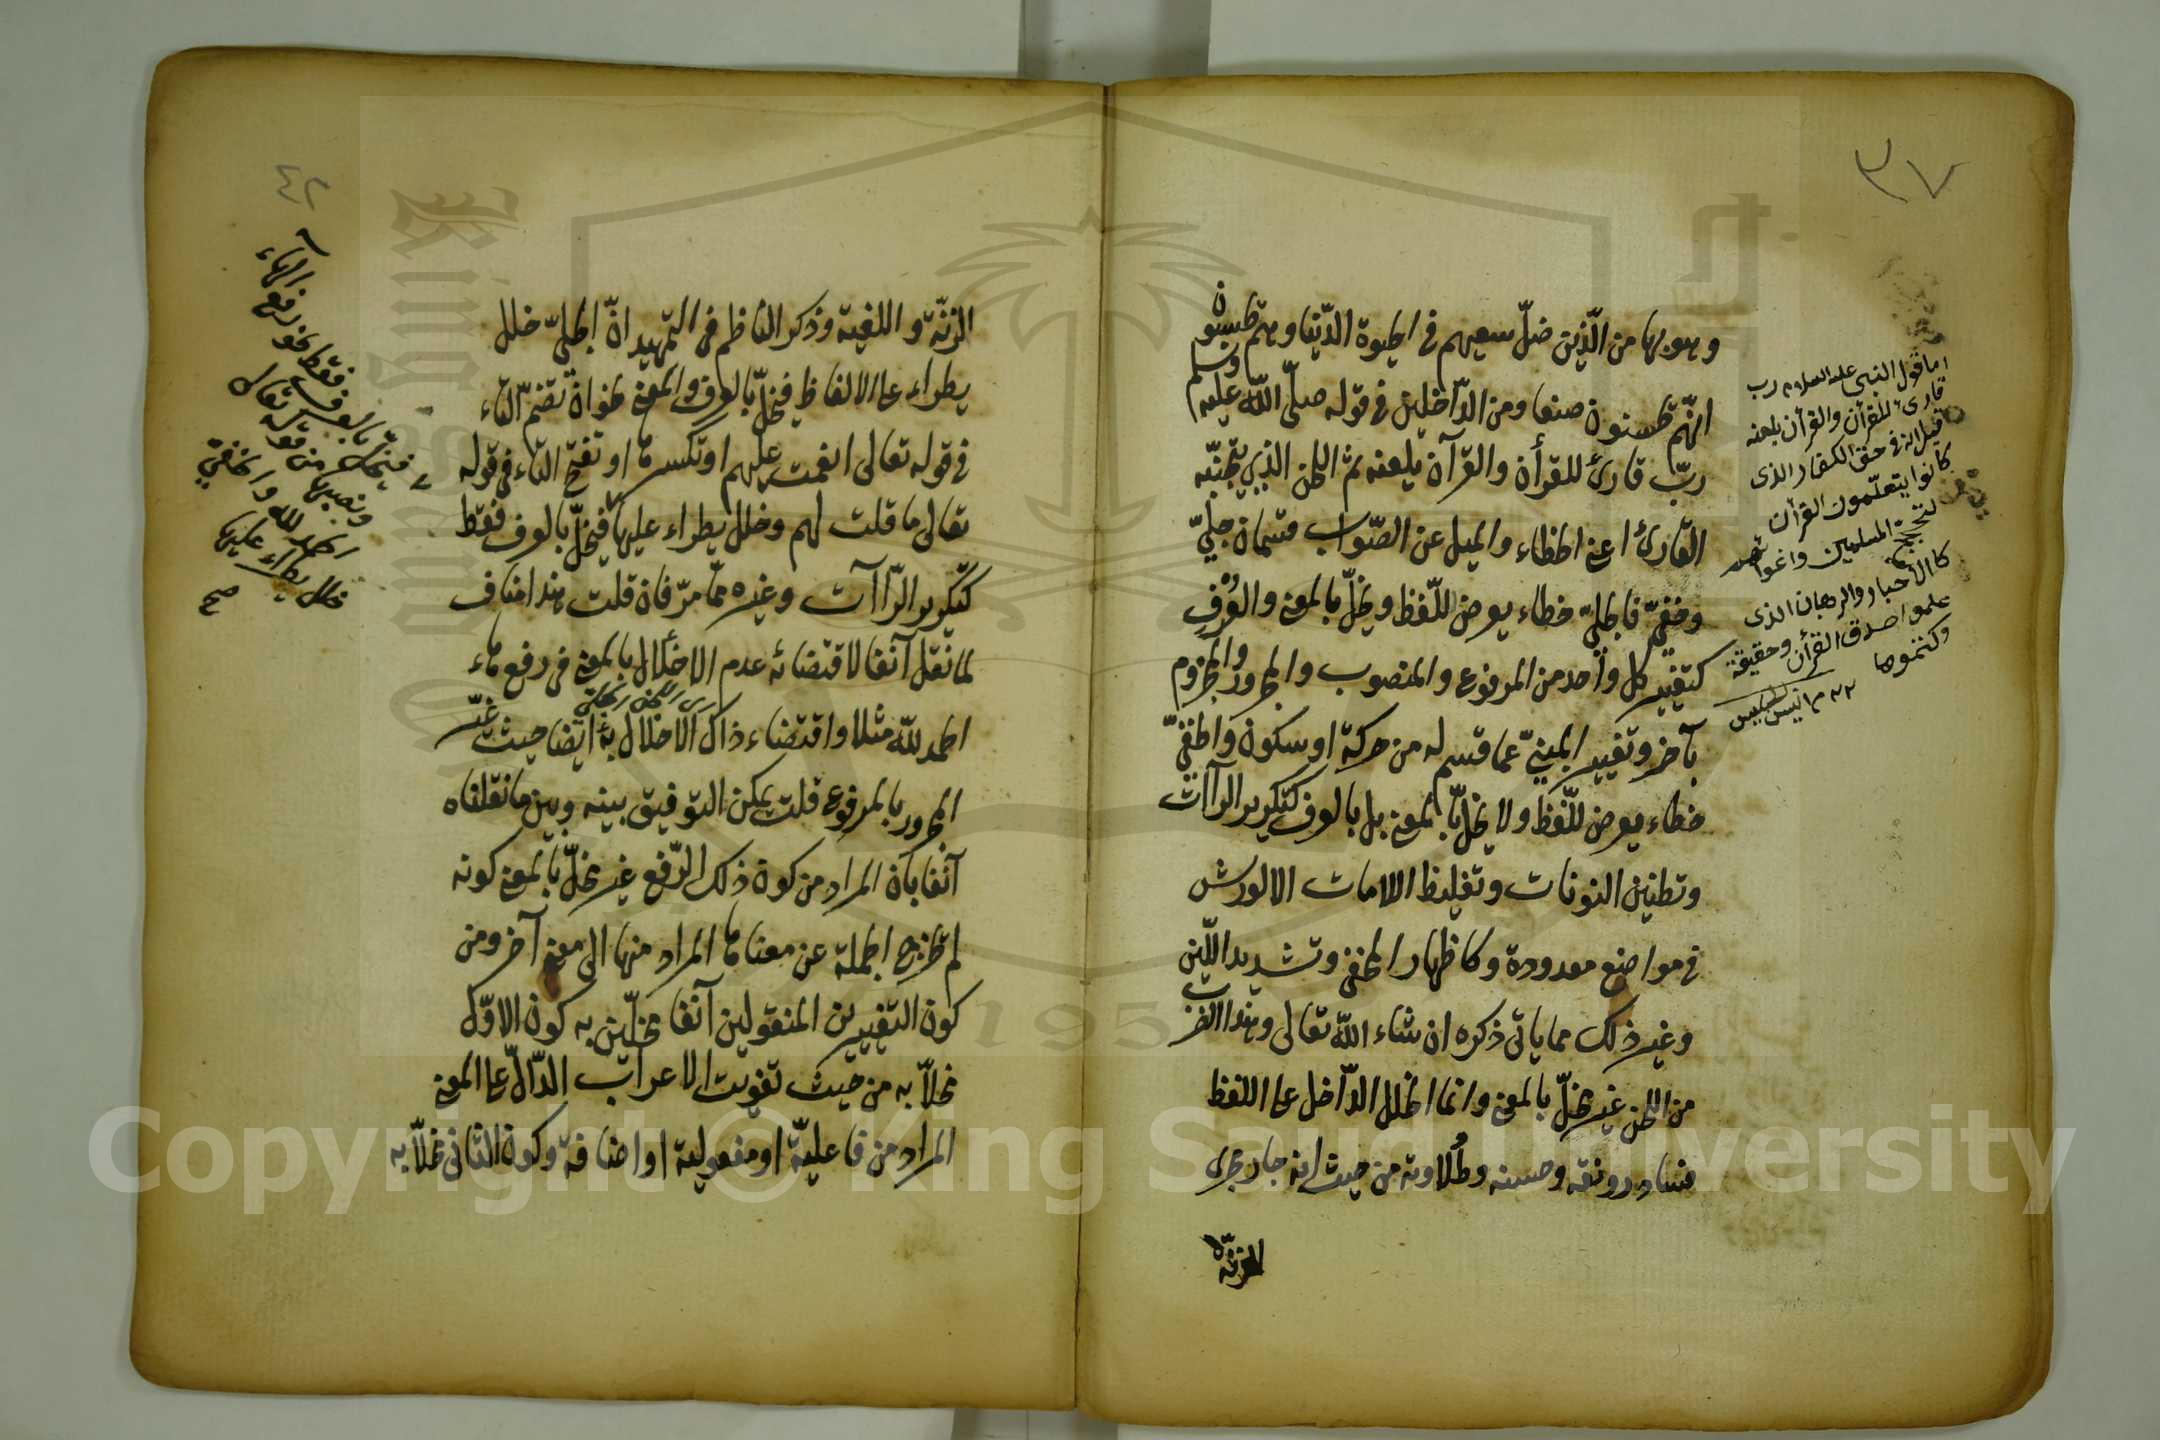 ٣٧
ومعوجها من الّذين ضلّ سعيهم فى الحيوة الدّنيا وهم يحسبون
انّهم يحسنون صنعا ومن الدّاخلين فى قوله صلّى اللّه عليه وسلم
ربّ قارئ للقرأن والقرآن يلعنه ثم اللحن الذى يجتنبه
القارئ اعنى الخطاء والميل عن الصّواب قسمان جلىّ
وخفىّ فالجلىّ خطاء يعرض للّفظ ويخلّ بالمعنى والعرف
كتغيير كل واحد من المرفوع والمنصوب والمجرور والمجزوم
بآخر وتغيير المبنىّ عما قسم له من حركة او سكون والخفىّ
خطاء يعرض للّفظ ولا يخلّ بالمعنى بل بالعرف كتكرير الراآت
وتطنين النونات وتغليظ اللامات الا لورش
فى مواضع معدودة وكاظهار المخفى وتشديد الليّن
وغير ذلك مما ياتى ذكره ان شاء اللّه تعالى وهذا الضرب
من اللحن غير مخلّ بالمعنى وانما الخلل الدّاخل على اللفظ
فساد رونقه وحسنه وطلاوته من حيث انه جار مجرى
الرنّة
اما قول النبى عليه السلام رب
قارئ للقرأن والقرأن يلعنه
قيل انه فى حق الكفار الذى
كانوا يتعلّمون القرأن
المسلمين واغوائهم
كالاحبار والرهبان الذى
علموا صدق القرأن وحقيقته
وكتموها
٤٢
الرنّة واللغية وذكر الناظم فى التمهيد انّ الجلىّ خلل
يطراء على الالفاظ فيخلّ بالعرف والمعنى نحو ان تضمّ التاء
فى قوله تعالى انعمت عليهم او تكسرها او تفتح التاء فى قوله
تعالى ما قلت لهم وخلل يطراء عليها فيخلّ بالعرف فقط
كتكرير الرّاآت وغيره ممّا مرّ فان قلت هذا مناف
لما نقل آنفا لاقتضائه عدم الاخلال بالمعنى فى رفع هاء
الحمد للّه مثلا واقتضاء ذاك الاخلال به ايضا حيث غيّر
المجرور بالمرفوع قلت يمكن التوفيق بينه وبين ما نقلناه
آنفا بان المراد من كون ذلك الرّفع غير مخلّ بالمعنى كونه
لم تخرج الجملة عن معناها المراد منها الى معنى آخر ومن
كون التغييرين المنقولين آنفا مخلّين به كون الاوّل
مخلاّ به من حيث تفويت الاعراب الدّالّ على المعنى
المراد من فاعليّة او مفعولية او اضافة وكون الثانى مخلاّ به
فيخلّ بالعرف فقط نحو رفع الهاء
ونصبها من قوله تعالى
الحمد لله والخفى
خلل يطراء عليها
صح